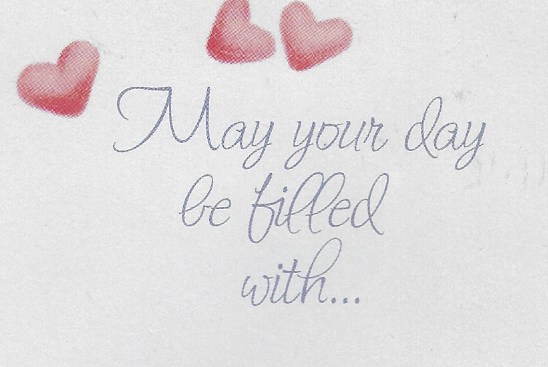 May your day
be filled
with...